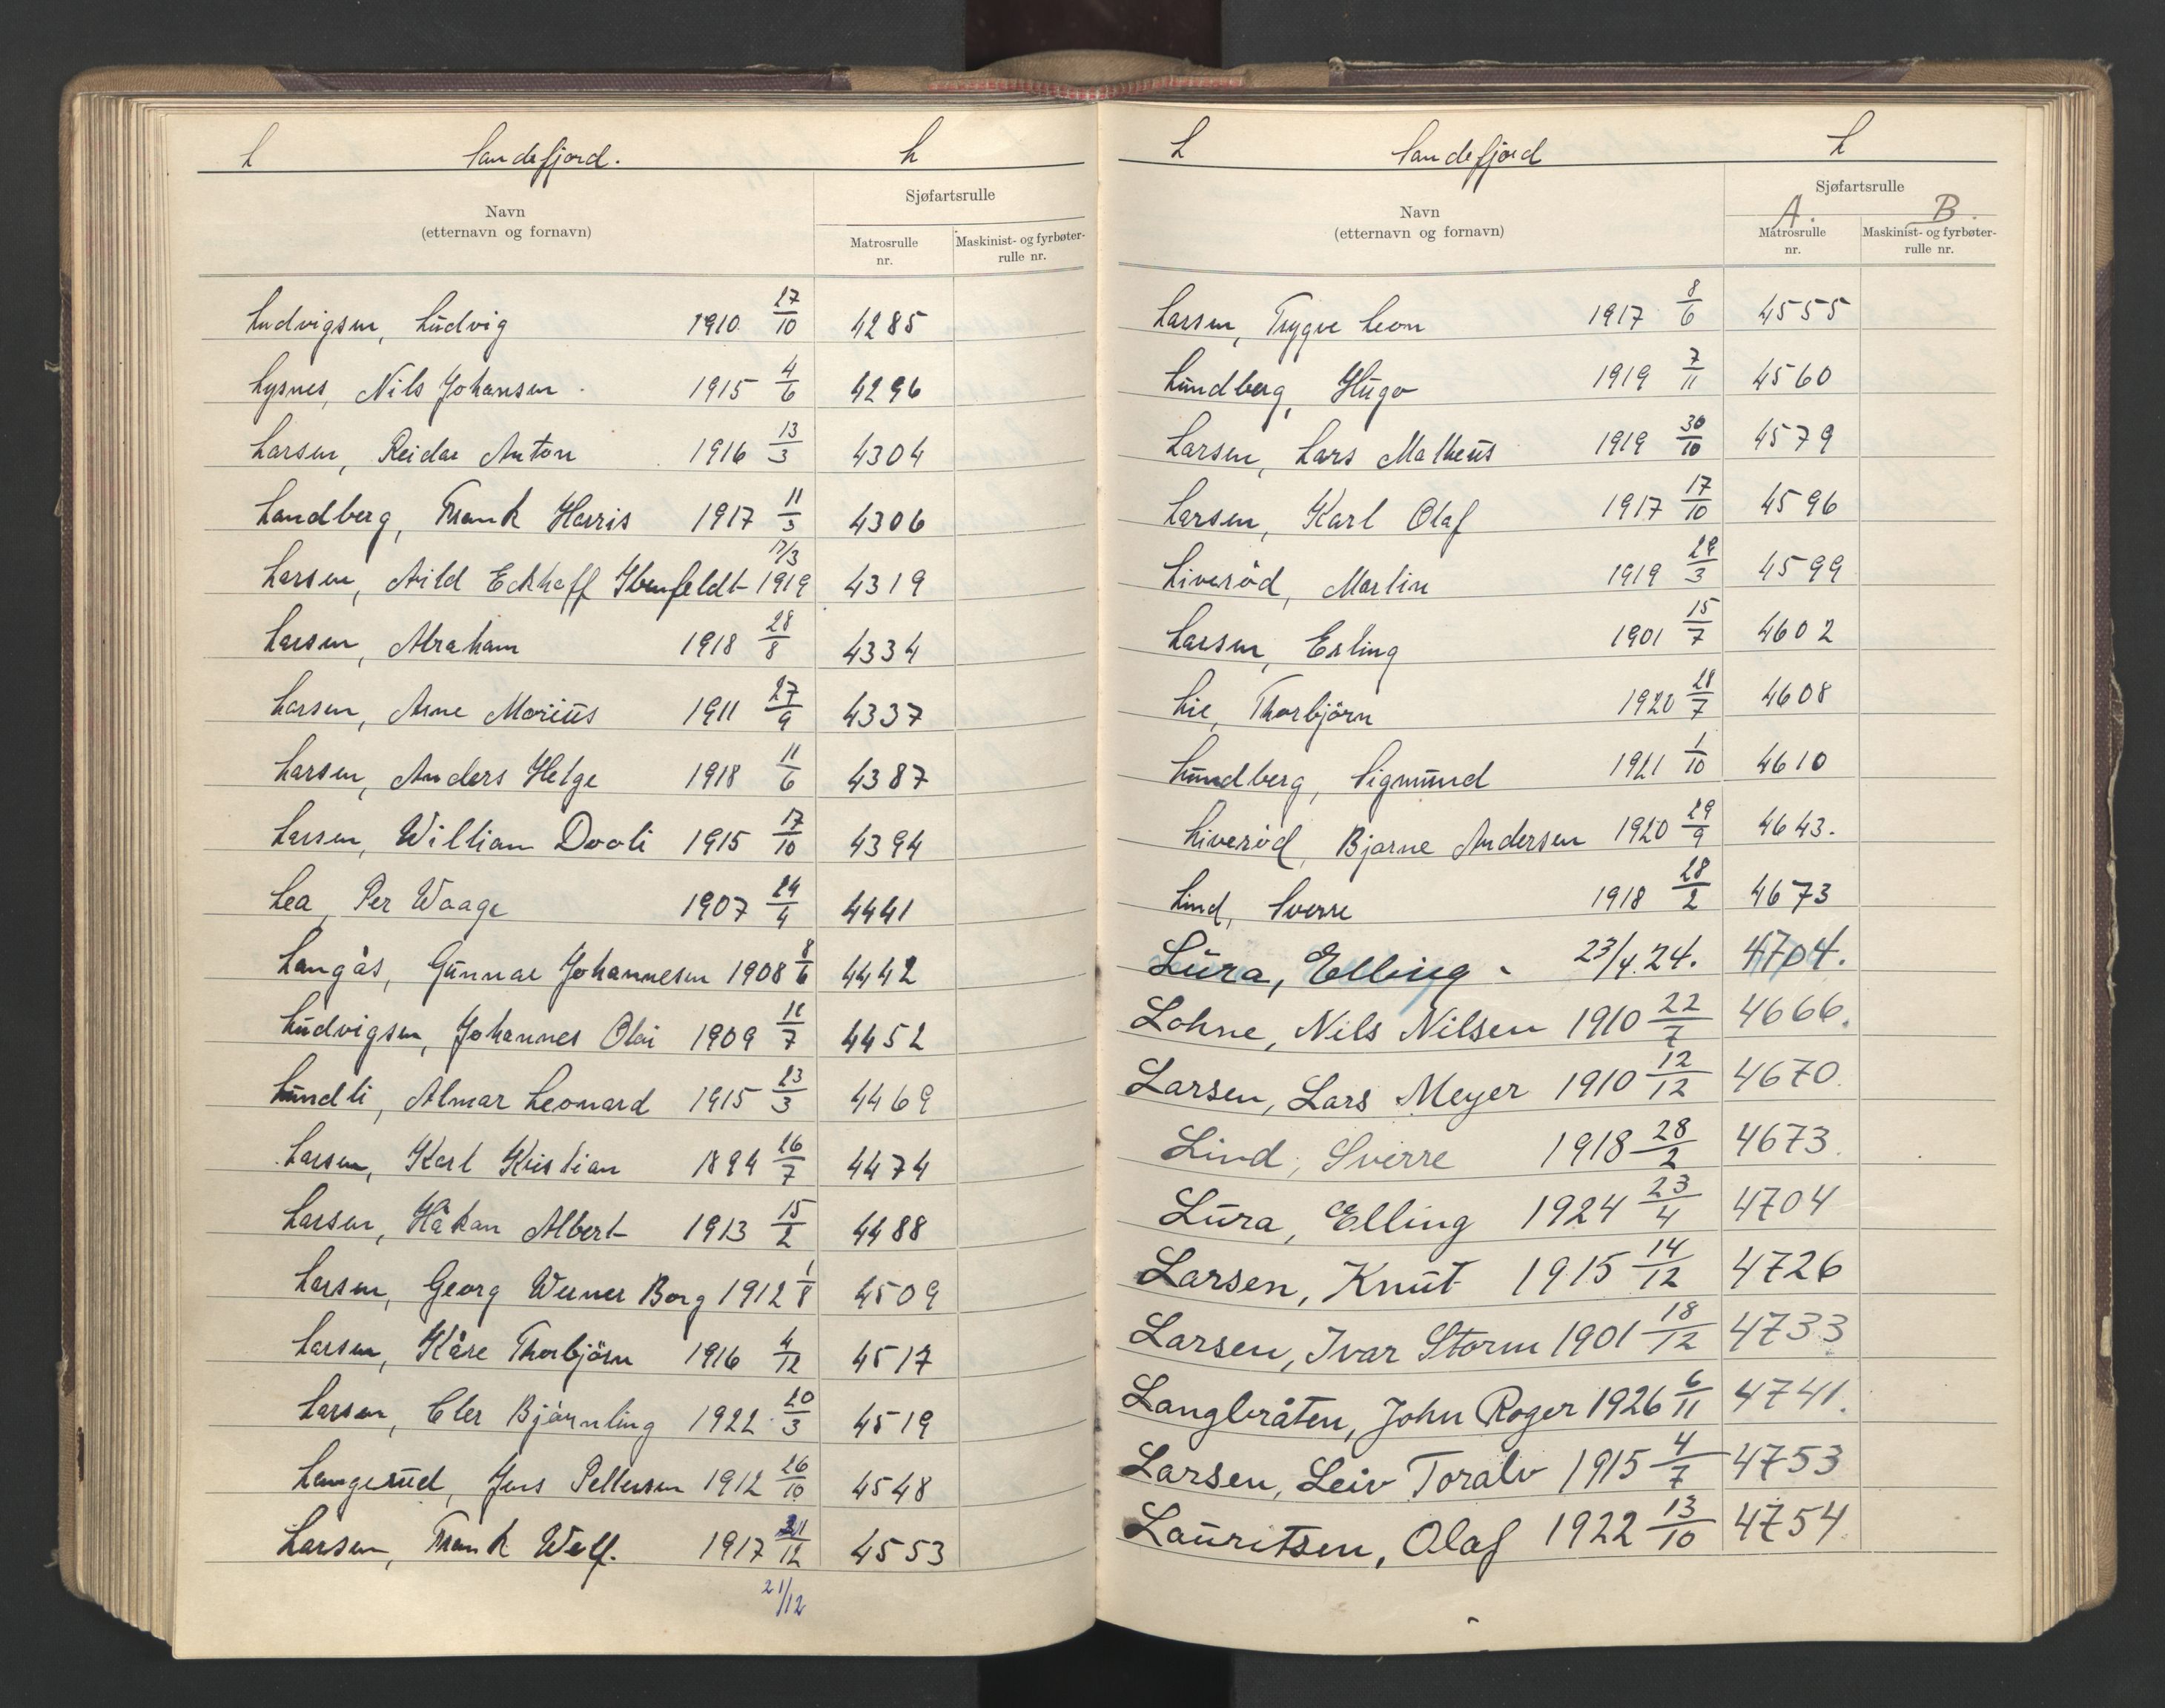 L Sandefjord. L
Sjøfartsrulle
Navn
(etternavn og fornavn)
Matrosrulle nr.
Maskinist- og fyrbøter-rulle nr.
Ludvigsen, Ludvig 1910 27/10 4285
Lysnes, Nils Johansen 1915 4/6 4296
Larsen, Reidar Anton 1916 13/3 4304
Landberg, Frank Harris 1917 11/3 4306
Larsen, Arild Eckhoff 17/3 1919 4319
Larsen, Abraham 1918 28/8 4334
Larsen, Arne Marius 1911 27/9 4337
Larsen, Anders Helge 1918 11/6 4387
Larsen, William 1915 17/10 4394
Lea, Per Waage 1907 24/4 4441
Langås, Gunnar Johannesen 1908 8/6 4442
Ludvigsen, Johannes Olai 1909 11/7 4452
Lundli, Almar Leonard 1915 23/3 4469
Larsen, Karl Kristian 1894 26/7 4474
Larsen, Håkan Albert 1913 15/2 4488
Larsen, Georg Werner Borg 1912 1/8 4509
Larsen, Kåre Thorbjörn 1916 4/12 4517
Larsen, Bjarnling 1922 20/3 4519
Langerud, Jens Pettersen 1912 26/10 4548
Larsen, Frank 1917 21/12 4553
21/12
L Sandefjord L
Sjøfartsrulle
Navn
(etternavn og fornavn)
A. B.
Matrosrulle nr.
Maskinist- og fyrbøter-rulle nr.
Larsen, Trygve Leon 1917 8/6 4555
Lundberg, Hugo 1919 7/11 4560
Larsen, Lars Matheus 1919 30/10 4579
Larsen, Karl Olaf 1917 17/10 4596
Liveröd, Martin 1919 29/3 4599
Larsen, Erling 1901 15/7 4602
Lie, Thorbjörn 1920 28/7 4608
Lundberg, Sigmund 1921 1/10 4610
Liveröd, Bjarne Andersen 1920 29/9 4643.
Lind, Sverre 1918 28/2 4673
Lura, Elling 23/4.24. 4704.
Lohne, Nils Nilsen 1910 22/7 4666.
Larsen, Lars Meyer 1910 12/12 4670.
Lind, Sverre 1918 28/2 4673.
Lura, Elling 1924 23/4 4704
Larsen, Knut 1915 14/12 4726
Larsen, Ivar Storm 1901 18/12 4733
Langbråten, John Roger 1926 6/11 4741.
Larsen, Leiv Toralv 1915 4/7 4753
Lauritsen, Olaf 1922 13/10 4754